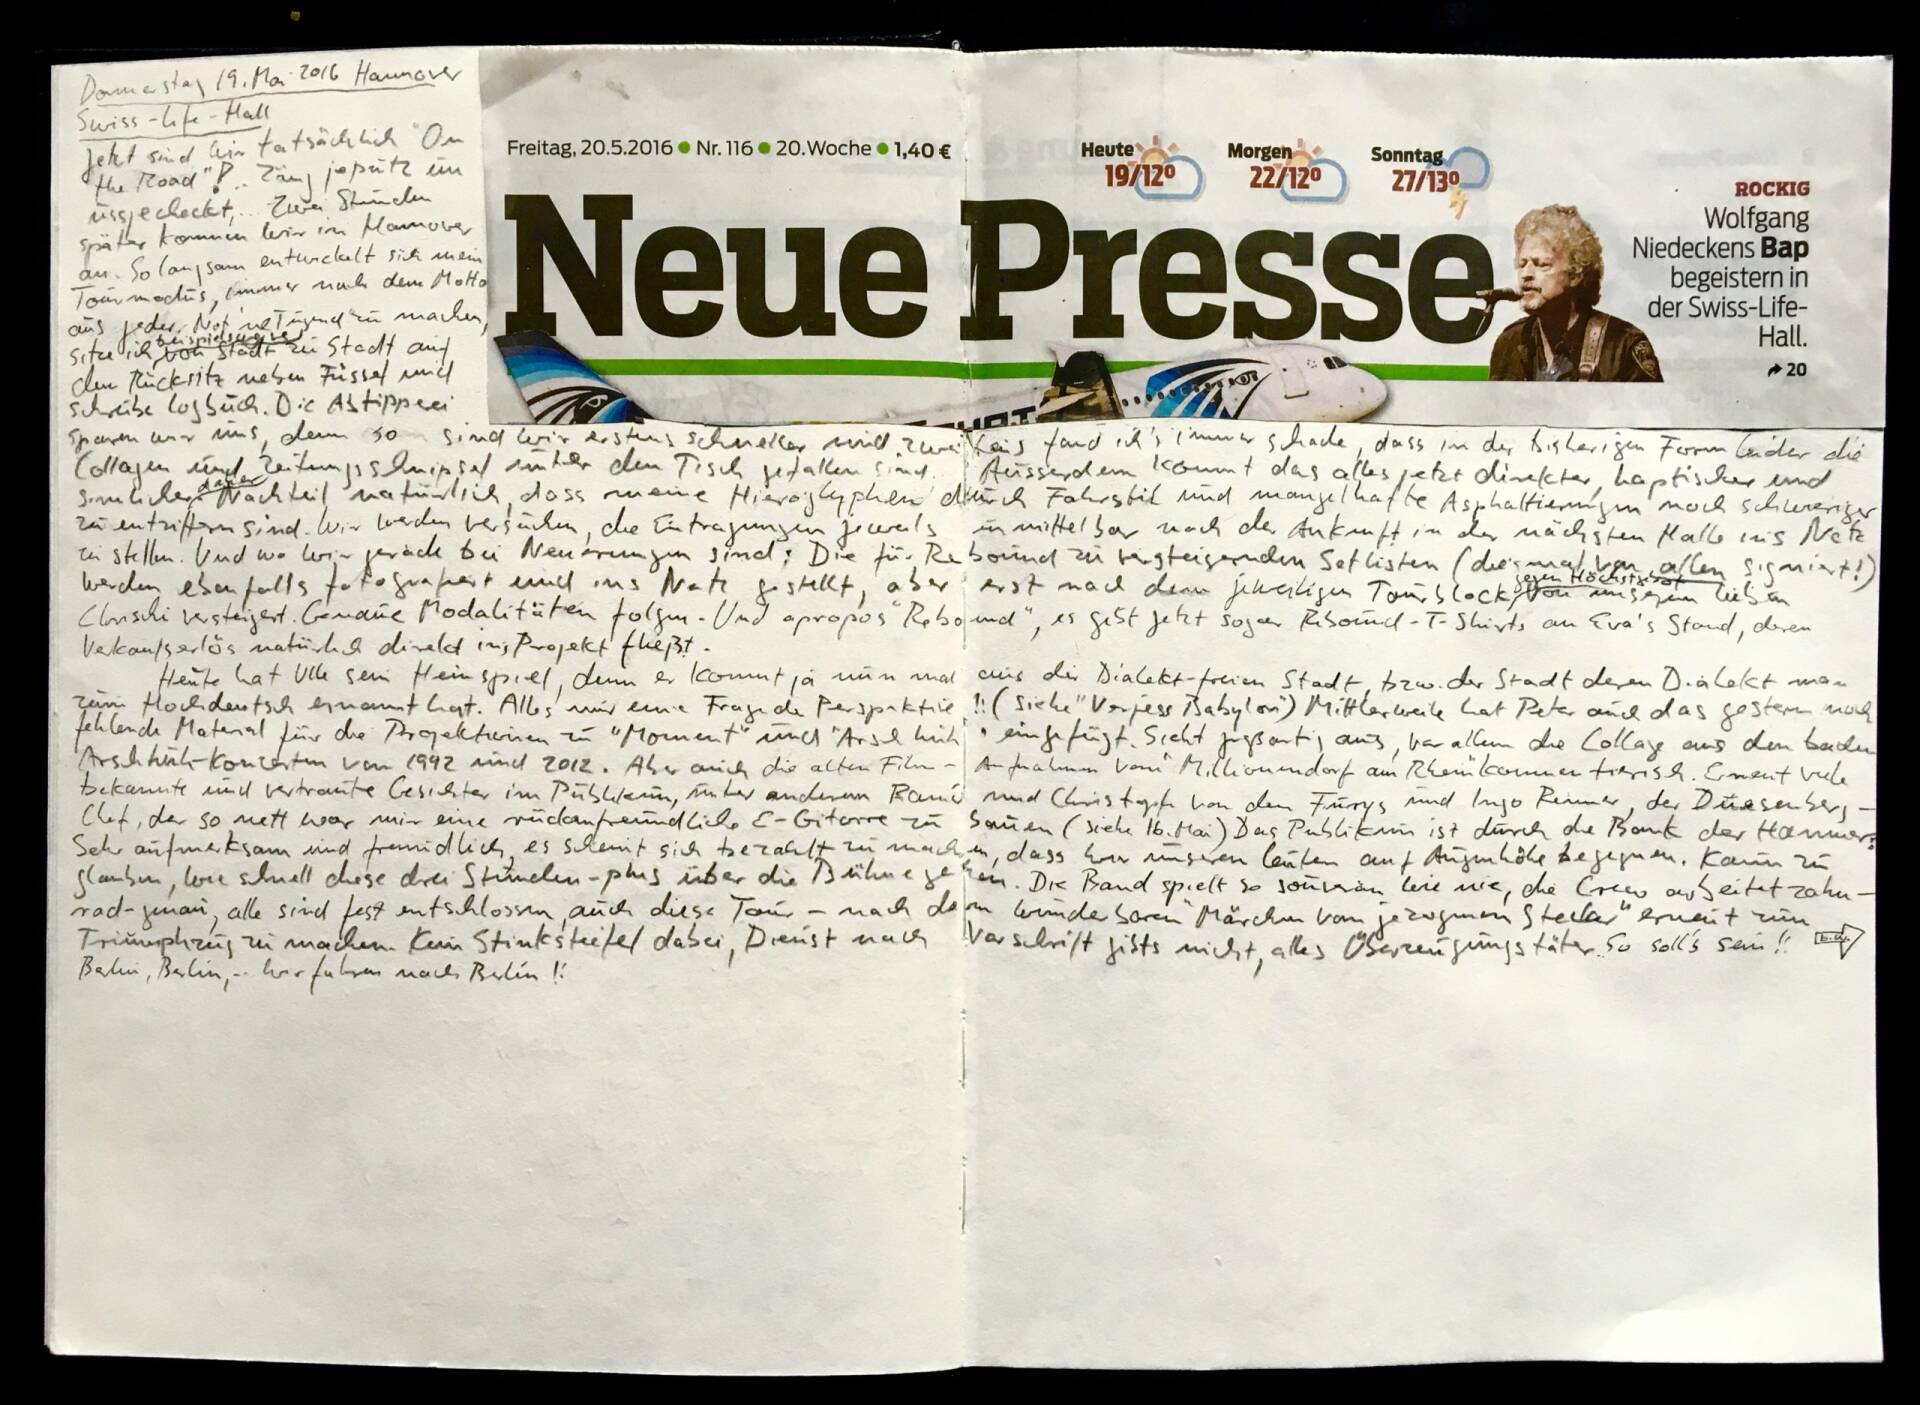 Donnerstag 19. Mai 2016 Hannover
Swiss-Life-Hall
Jetzt sind wir tatsächlich "On
the Road"!.. Zäng jeputz un
ussjecheckt,.. Zwei Stunden
später kommen wir in Hannover
an. So langsam entwickelt sich mein
Tourmodus, immer nach dem Motto
aus jeder Not 'ne Tugend zu machen,
sitze ich beispielsweise von Stadt zu Stadt auf
dem Rücksitz neben Füssel und
schreibe Logbuch. Die Abtipperei
Freitag, 20.5.2016 ● Nr. 116 ● 20. Woche ● 1,40 €
Heute 19/12°
Morgen 22/12°
Sonntag 27/13°
Neue Presse
ROCKIG
Wolfgang
Niedeckens Bap
begeistern in
der Swiss-Life-
Hall.
20
sparen wir uns, denn so sind wir erstens schneller und zweitens fand ich's immer schade, dass in der bisherigen Form leider die
Collagen und Zeitungsschnipsel unter den Tisch gefallen sind. Ausserdem kommt das alles jetzt direkter, haptischer und
sinnlicher daher. Nachteil natürlich, dass meine Hieroglyphen durch Fahrstil und mangelhafte Asphaltierungen noch schwieriger
zu entziffern sind. Wir werden versuchen, die Eintragungen jeweils unmittelbar nach der Ankunft in der nächsten Halle ins Netz
zu stellen. Und wo wir gerade bei Neuerungen sind: Die für Rebound zu versteigernden Setlisten (diesmal von allen signiert!)
werden ebenfalls fotografiert und ins Netz gestellt, aber erst nach dem jeweiligen Tourblock gegen Höchstgebot von unserem lieben
Chrischi versteigert. Genaue Modalitäten folgen. Und apropos "Rebound", es gibt jetzt sogar Rebound-T-Shirts an Eva's Stand, deren
Verkaufserlös natürlich direkt ins Projekt fließt.
Heute hat Ulle sein Heimspiel, denn er kommt ja nun mal aus der Dialekt-freien Stadt, bzw. der Stadt deren Dialekt man
zum Hochdeutsch ernannt hat. Alles nur eine Frage der Perspektive!! (siehe "Verjess Babylon") Mittlerweile hat Peter auch das gestern noch
fehlende Material für die Projektionen zu "Moment" und "Arsch huh" eingefügt. Sieht großartig aus, vor allem die Collage aus den beiden
Arschhuh-Konzerten von 1992 und 2012. Aber auch die alten Film-Aufnahmen vom "Millionendorf am Rhein" kommen tierisch. Erneut viele
bekannte und vertraute Gesichter im Publikum, unter anderem Rainer und Christoph von den Furys und Ingo Renner, der Duesenberg-
Chef, der so nett war mir eine rückenfreundliche E-Gitarre zu bauen (siehe 16. Mai) Das Publikum ist durch die Bank der Hammer:
Sehr aufmerksam und freundlich, es scheint sich bezahlt zu machen, dass wir unseren Leuten auf Augenhöhe begegnen. Kaum zu
glauben, wie schnell diese drei Stunden-plus über die Bühne gehen. Die Band spielt so souverän wie nie, die Crew arbeitet zahn-
rad-genau, alle sind fest entschlossen, auch diese Tour - nach dem wunderbaren "Märchen vom gezogenen Stecker" erneut zum
Triumphzug zu machen. Kein Stinkstiefel dabei, Dienst nach Vorschrift gibts nicht, alles Überzeugungstäter. So soll's sein!! b.w.
Berlin, Berlin,.. wir fahren nach Berlin!!